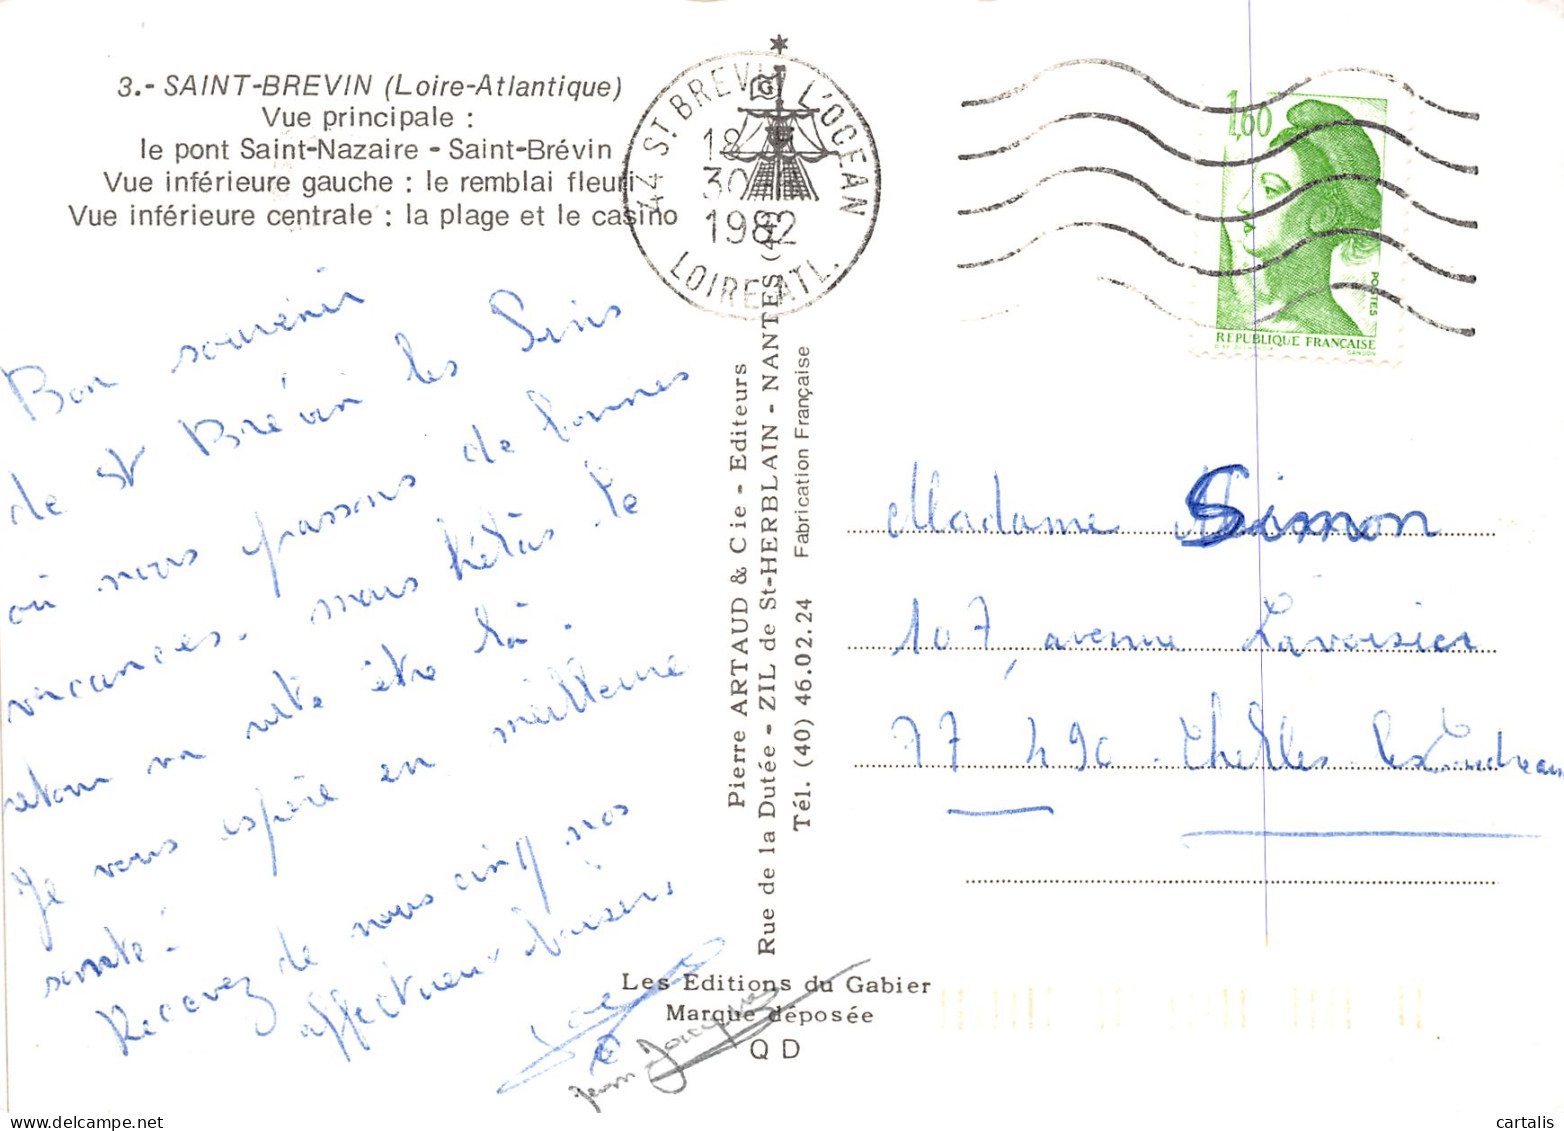 3.- SAINT-BREVIN (Loire-Atlantique)
Vue principale :
le pont Saint-Nazaire - Saint-Brévin
Vue inférieure gauche : le remblai fleuri
Vue inférieure centrale : la plage et le casino
44 ST BREVIN L'OCEAN
18
30
1982
LOIRE-ATL.
1,60
POSTES
REPUBLIQUE FRANÇAISE
GANDON
Bon souvenir
de St Brévin les Pins
où nous passons de bonnes
vacances. mais hélas. le
retour va vite être là.
Je vous espère en meilleure
santé.
Recevez de nous cinq nos
affectueux baisers.
Jean Jacques
Pierre ARTAUD & Cie - Editeurs
Rue de la Dutée - ZIL de St-HERBLAIN - NANTES (44)
Tél. (40) 46.02.24 Fabrication Française
Les Editions du Gabier
Marque déposée
QD
Madame Simon
107, avenue Lavoisier
77 490. Chelles les Coudreaux
cartalis